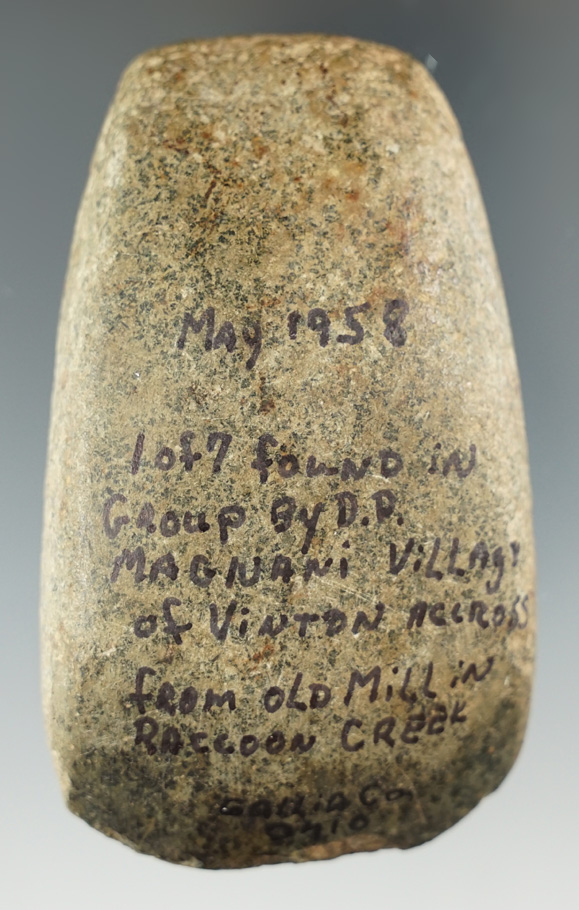 May 1958
1 of 7 foUND iN
GRoup By D.D.
MAGNANi ViLLAge
of ViNTON ACCROSS
fRom oLD MiLL iN
RACCOON CREEK
GALLiA Co
OHIO